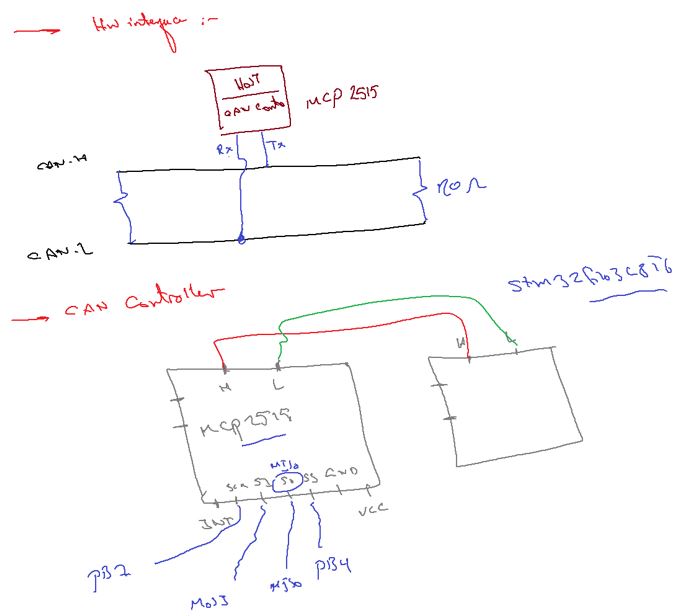 HW integra :-
HOST
CAN Contro
MCP 2515
Rx
Tx
CAN-H
120 Ω
CAN-L
CAN Controller
Stm32f103C8T6
H
L
H
L
MCP2515
MISO
SCK
SI
SO
SS
GND
INT
VCC
PB7
MOSI
MISO
PB4